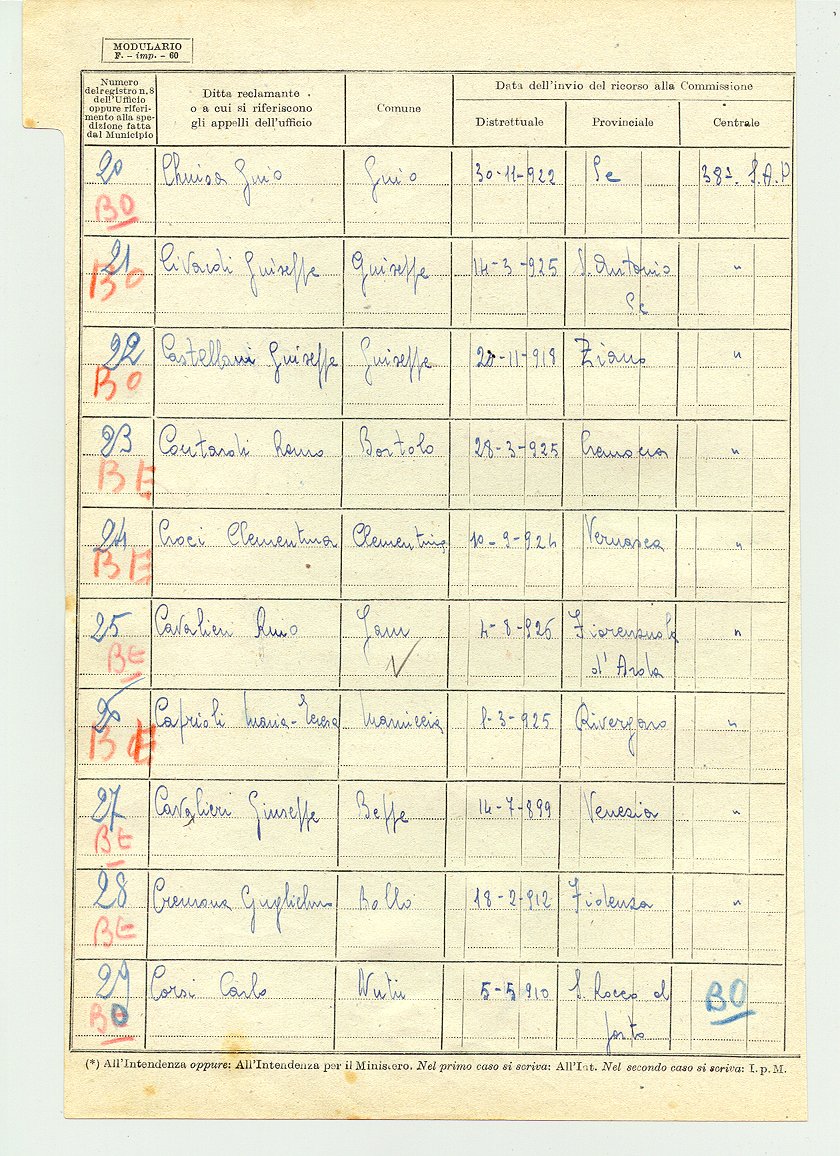 MODULARIO
F. - imp. - 60
Numero del registro n. 8 dell'Ufficio oppure riferimento alla spedizione fatta dal Municipio
Ditta reclamante o a cui si riferiscono gli appelli dell'ufficio
Comune
Data dell'invio del ricorso alla Commissione
Distrettuale Provinciale Centrale
20 Gino Gino 30-11-922 Pc
BO
21 Civardi Guiseffe Guiseffe 14-3-925 S. Antonio "
BO Pc
22 Castellani Guiseffe Guiseffe 20-11-918 Ziano "
BO
23 Remo Bortolo 28-3-925 Cremona "
BE
24 Croci Clementina Clementina 10-9-924 Vernasca "
BE
25 Cavalieri Rino 4-8-926 Fiorenzuola "
BE d'Arda
26 Caprioli Maria-Teresa 1-3-925 Rivergaro "
BE
27 Cavalieri Giuseffe Beffe 14-7-899 Venezia "
BE
28 Cremona Guglielmo Bollo 18-2-912 Fidenza "
BE
29 Corsi Carlo 5-5-910 S. Rocco al BO
BO Porto
(*) All'Intendenza oppure: All'Intendenza per il Ministero. Nel primo caso si scriva: All'Int. Nel secondo caso si scriva: I. p. M.